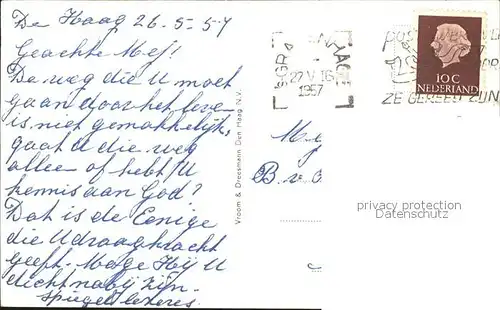 De Haag 26-5-57
Geachte Mej!
De weg die U moet
gaan door het leven
is niet gemakkelijk,
gaat U die weg
alleen of hebt U
kennis aan God?
Dat is de Eenige
die U draagkracht
geeft. Moge Hij U
dicht nabij zijn.
Spiegel lezeres.
Vroom & Dreesmann Den Haag N.V.
27.V 16
1957
ZE GEREED ZIJN
10C
NEDERLAND
B. v.
privacy protection
Datenschutz